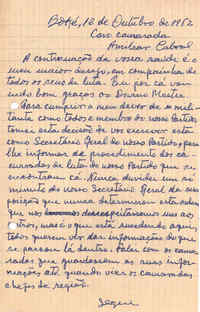 Boké, 12 de Outubro de 1962
Caro camarada
Amílcar Cabral
A continuação da vossa saúde é o
meu maior desejo, em companhia de
todos os péus de luta. Eu por cá vou
indo bom graças ao Divino Mestre
Para cumprir o meu dever de militante
como todos e membro do nosso Partido,
tomei esta decisão de vos escrever esta
como Secretário Geral do nosso Partido, para
lhe informar do procedimento dos camaradas
de luta do nosso Partido que se
encontram cá. Nunca duvidei um só
minuto do novo Secretário Geral da sua
posição que nunca determinou esta ordem
que nos desrespeitássemos uns aos
outros, mas o que está sucedendo aqui,
todos querem dar as informações do que
se passam lá dentro. Falei com os camaradas
que guardassem as suas informações
até quando vier os camaradas
chefes de região.
Segue